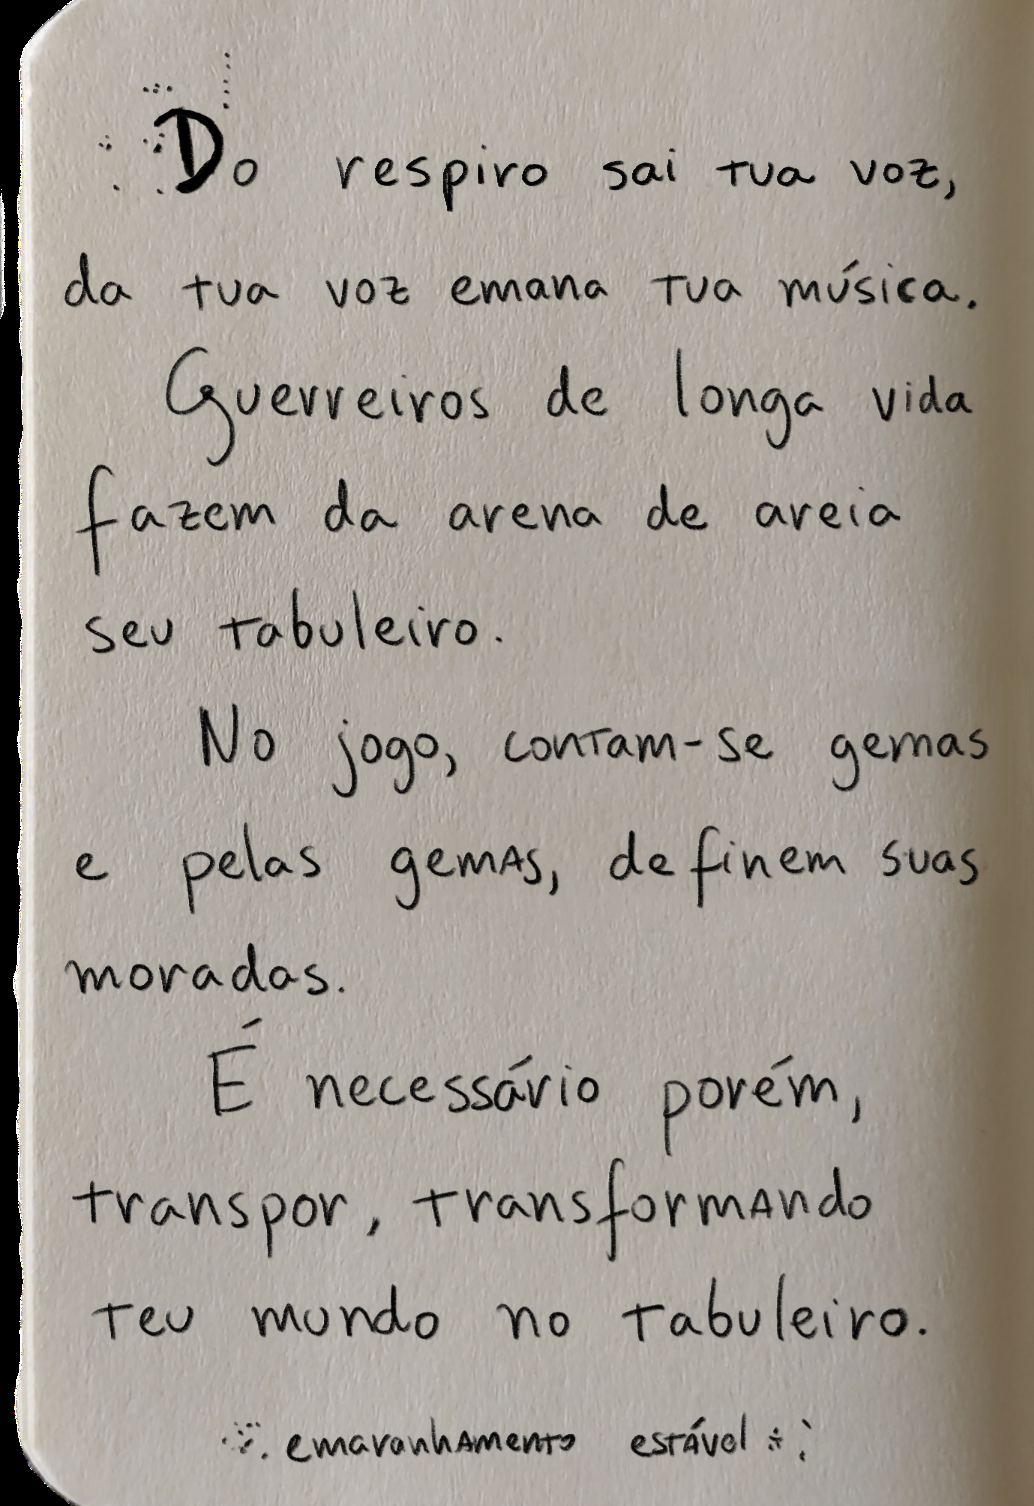 Do respiro sai tua voz,
da tua voz emana tua música.
Guerreiros de longa vida
fazem da arena de areia
seu tabuleiro.
No jogo, contam-se gemas
e pelas gemas, definem suas
moradas.
É necessário porém,
transpor, transformando
teu mundo no tabuleiro.
emaranhamento estável